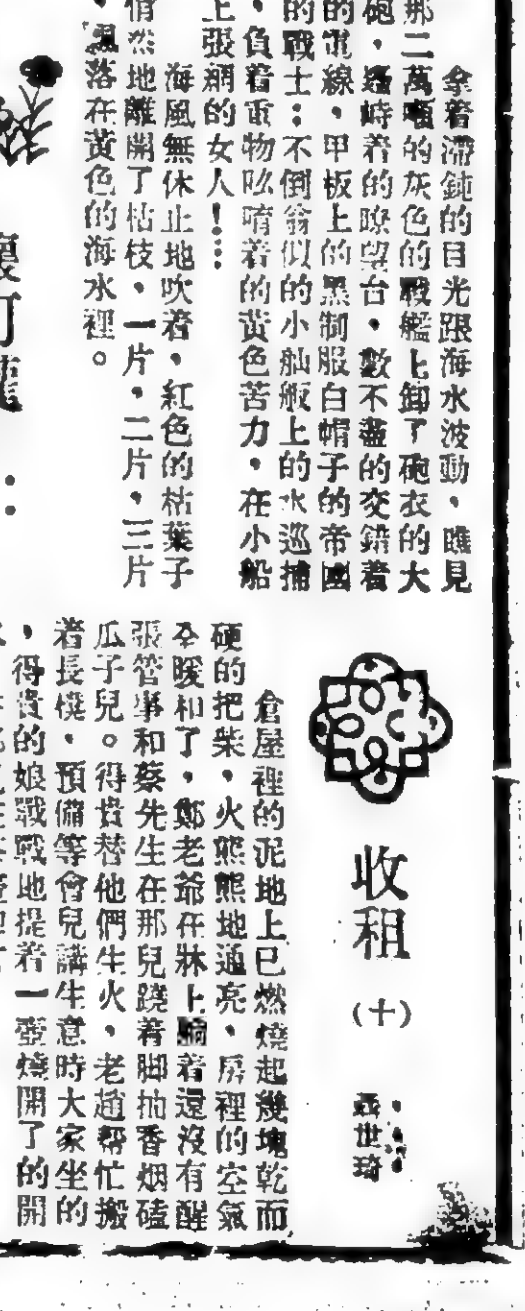 拿着滯鈍的目光跟海水波動，瞧見
那二萬噸的灰色的戰艦上卸了砲衣的大
砲，矗峙着的瞭望台，數不盡的交錯着
的電線，甲板上的黑制服白帽子的帝國
的戰士：不倒翁似的小舢舨上的水巡捕
，負着重物吆唷着的黃色苦力，在小船
上張網的女人！…
海風無休止地吹着，紅色的枯葉子
悄然地離開了枯枝，一片，二片，三片
，飄落在黃色的海水裡。
收租
（十）
聶世琦
倉屋裡的泥地上已燃燒起幾塊乾而
硬的把柴，火熊熊地通亮，房裡的空氣
全暖和了，鄭老爺在牀上躺着還沒有醒
張管事和蔡先生在那兒蹺着脚抽香烟磕
瓜子兒。得貴替他們生火，老趙帮忙搬
着長櫈，預備等會兒講生意時大家坐的
，得貴的娘戰戰地提着一壺燒開了的開